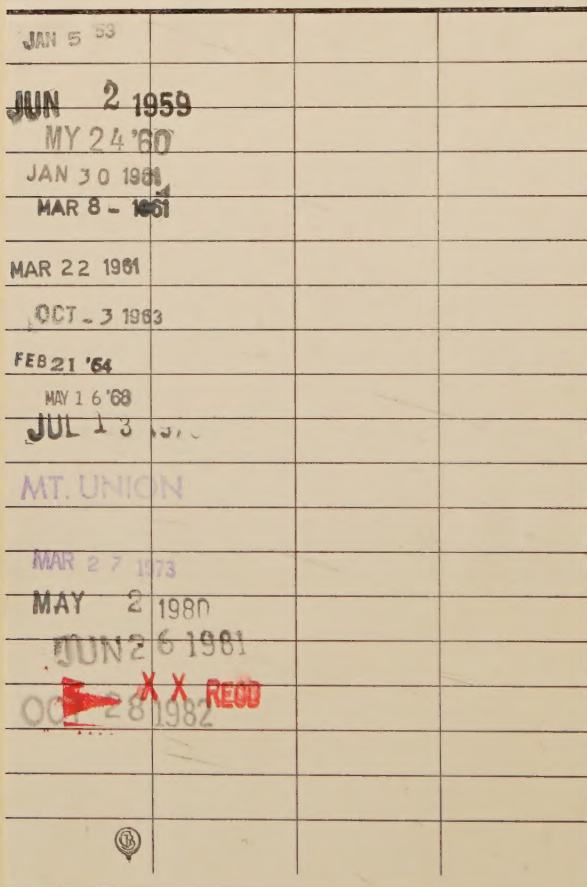 JAN 5 '53
JUN 2 1959
MY 24 '60
JAN 30 1961
MAR 8 - 1961
MAR 22 1961
OCT - 3 1963
FEB 21 '64
MAY 16 '68
JUL 13
MT. UNION
MAR 27 1973
MAY 2 1980
JUN 26 1981
X X RECD
OCT 28 1982